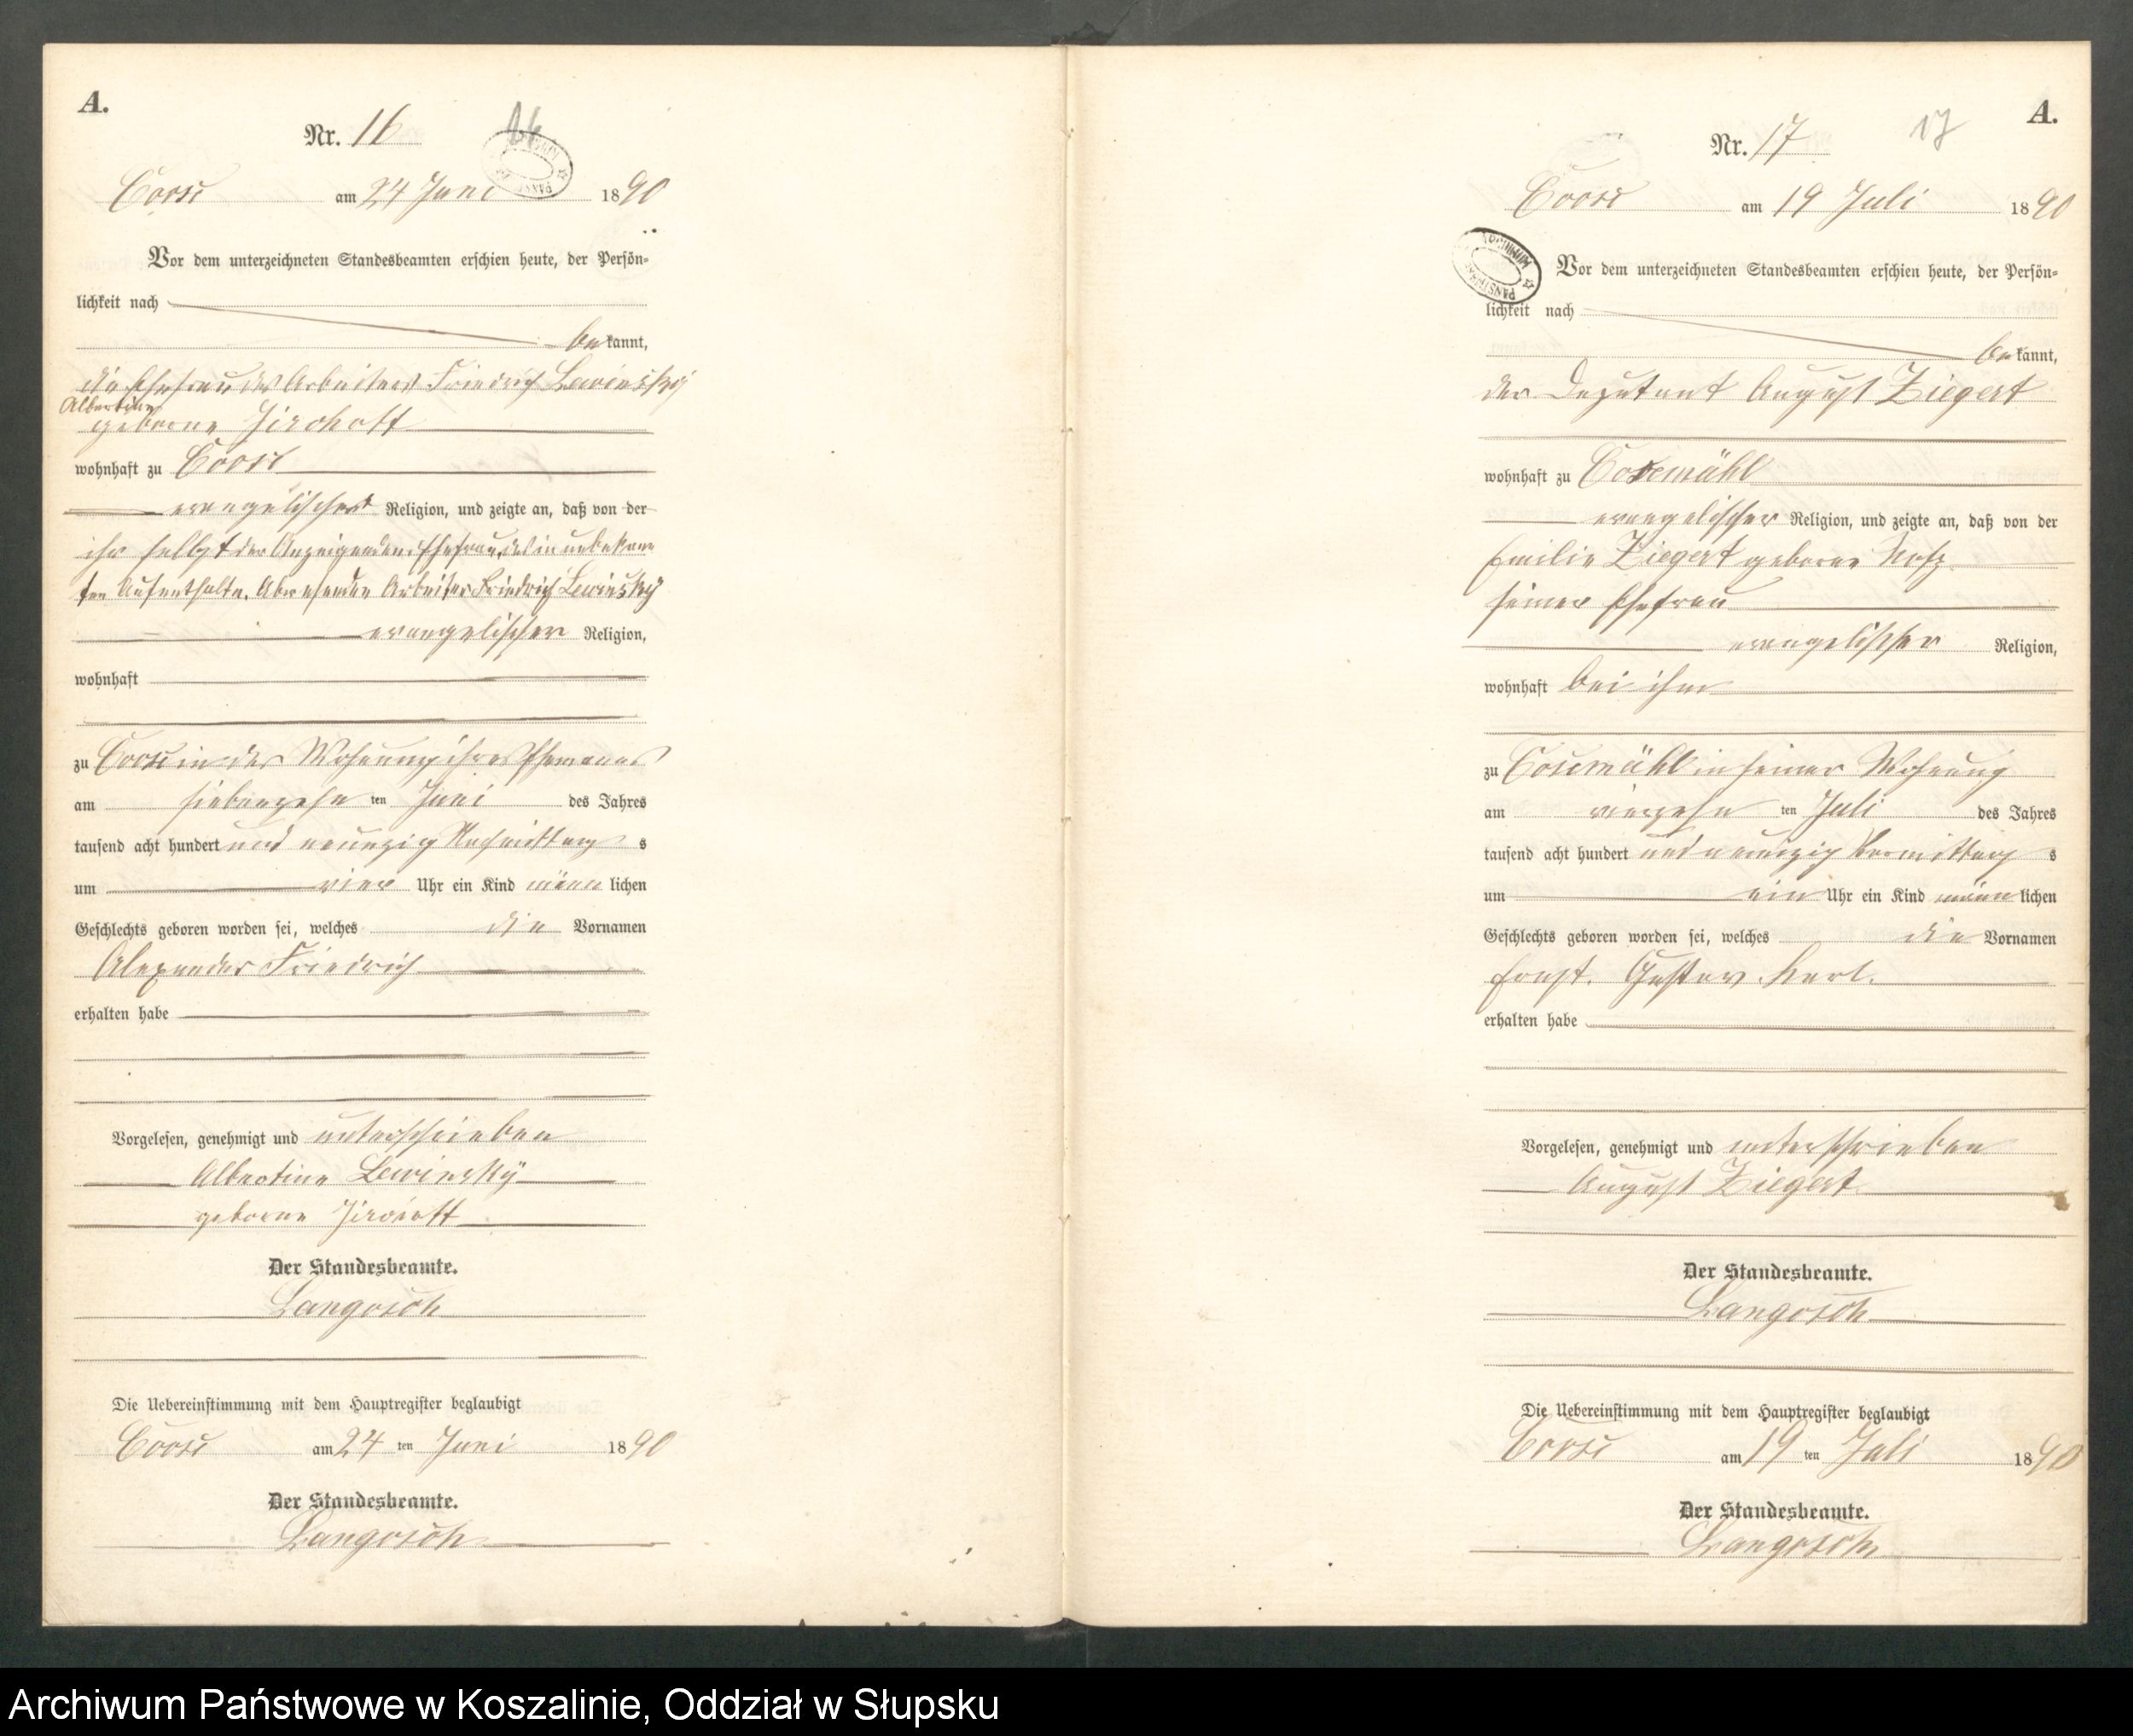 A.
Nr. 16
16
Coose am 24 Juni 1890
Vor dem unterzeichneten Standesbeamten erschien heute, der Persön-
lichkeit nach
bekannt,
die Ehefrau des Arbeiters Friedrich Lewinsky
Albertine
geborne
wohnhaft zu Coose
evangelischer Religion, und zeigte an, daß von der
ihr selbst der Anzeigenden, Ehefrau des in unbekann
ten Aufenthalte. Abwesenden Arbeiter Friedrich Lewinsky
evangelischer Religion,
wohnhaft
zu Coose in der Wohnung ihres Ehemanns
am siebenzehn ten Juni des Jahres
tausend acht hundert und neunzig Nachmittag s
um vier Uhr ein Kind männlichen
Geschlechts geboren worden sei, welches die Vornamen
Alexander Friedrich
erhalten habe
Vorgelesen, genehmigt und unterschrieben
Albertine Lewinsky
geborne
Der Standesbeamte.
Langosch
Die Uebereinstimmung mit dem Hauptregister beglaubigt
Coose am 24 ten Juni 1890
Der Standesbeamte.
Langosch
A.
Nr. 17
17
Coose am 19 Juli 1890
Vor dem unterzeichneten Standesbeamten erschien heute, der Persön-
lichkeit nach
bekannt,
der Deputant August Ziegert
wohnhaft zu Cosemühl
evangelischer Religion, und zeigte an, daß von der
Emilie Ziegert geborne
seiner Ehefrau
evangelischer Religion,
wohnhaft bei ihm
zu Cosemühl in seiner Wohnung
am vierzehn ten Juli des Jahres
tausend acht hundert und neunzig Vormittag s
um ein Uhr ein Kind männlichen
Geschlechts geboren worden sei, welches die Vornamen
Ernst. Gustav. Karl.
erhalten habe
Vorgelesen, genehmigt und unterschrieben
August Ziegert
Der Standesbeamte.
Langosch
Die Uebereinstimmung mit dem Hauptregister beglaubigt
Coose am 19 ten Juli 1890
Der Standesbeamte.
Langosch
Archiwum Państwowe w Koszalinie, Oddział w Słupsku